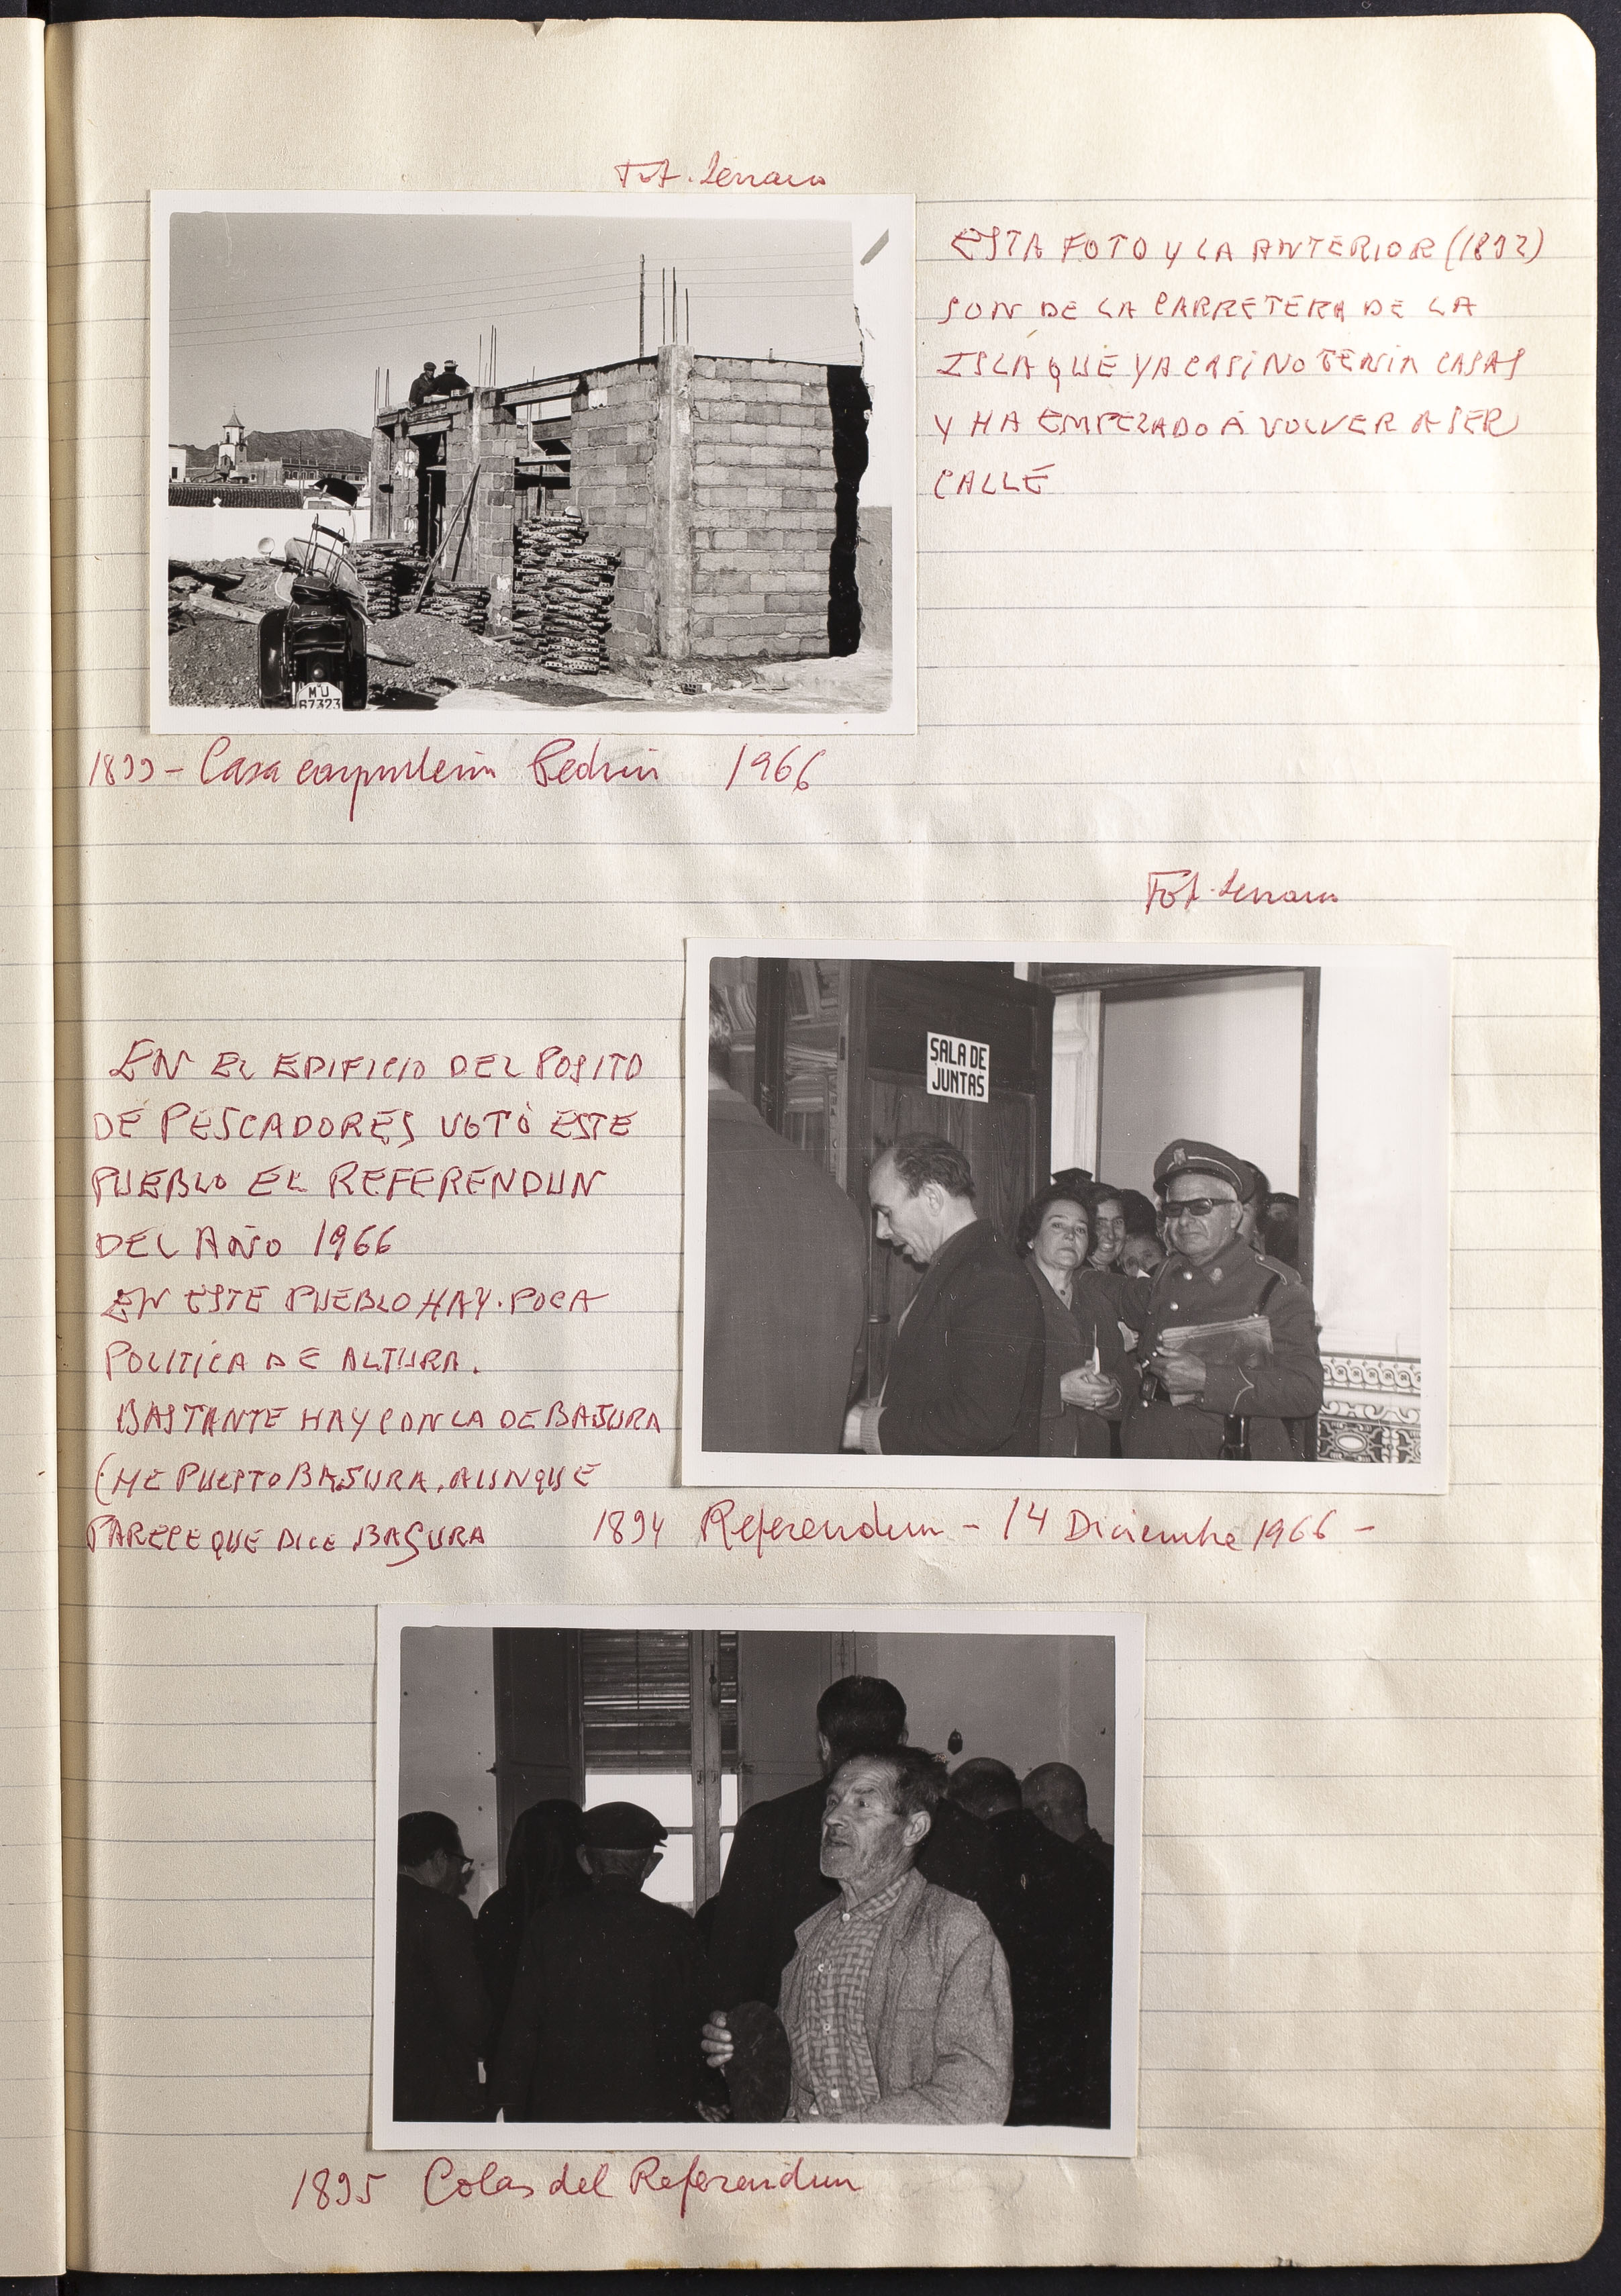 Fot. Serrano
ESTA FOTO Y LA ANTERIOR (1892)
SON DE LA CARRETERA DE LA
ISLA QUE YA CASI NO TENIA CASAS
Y HA EMPEZADO A VOLVER A SER
CALLE
MU
67323
1893 - Casa carpinteria Pedrin 1966
Fot. Serrano
SALA DE
JUNTAS
EN EL EDIFICIO DEL POSITO
DE PESCADORES VOTÓ ESTE
PUEBLO EL REFERENDUN
DEL AÑO 1966
EN ESTE PUEBLO HAY. POCA
POLITICA DE ALTURA.
BASTANTE HAY CON LA DE BAJURA
(HE PUESTO BAJURA, AUNQUE
PARECE QUE DICE BASURA
1894 Referendun - 14 Diciembre 1966 -
1895 Colas del Referendun